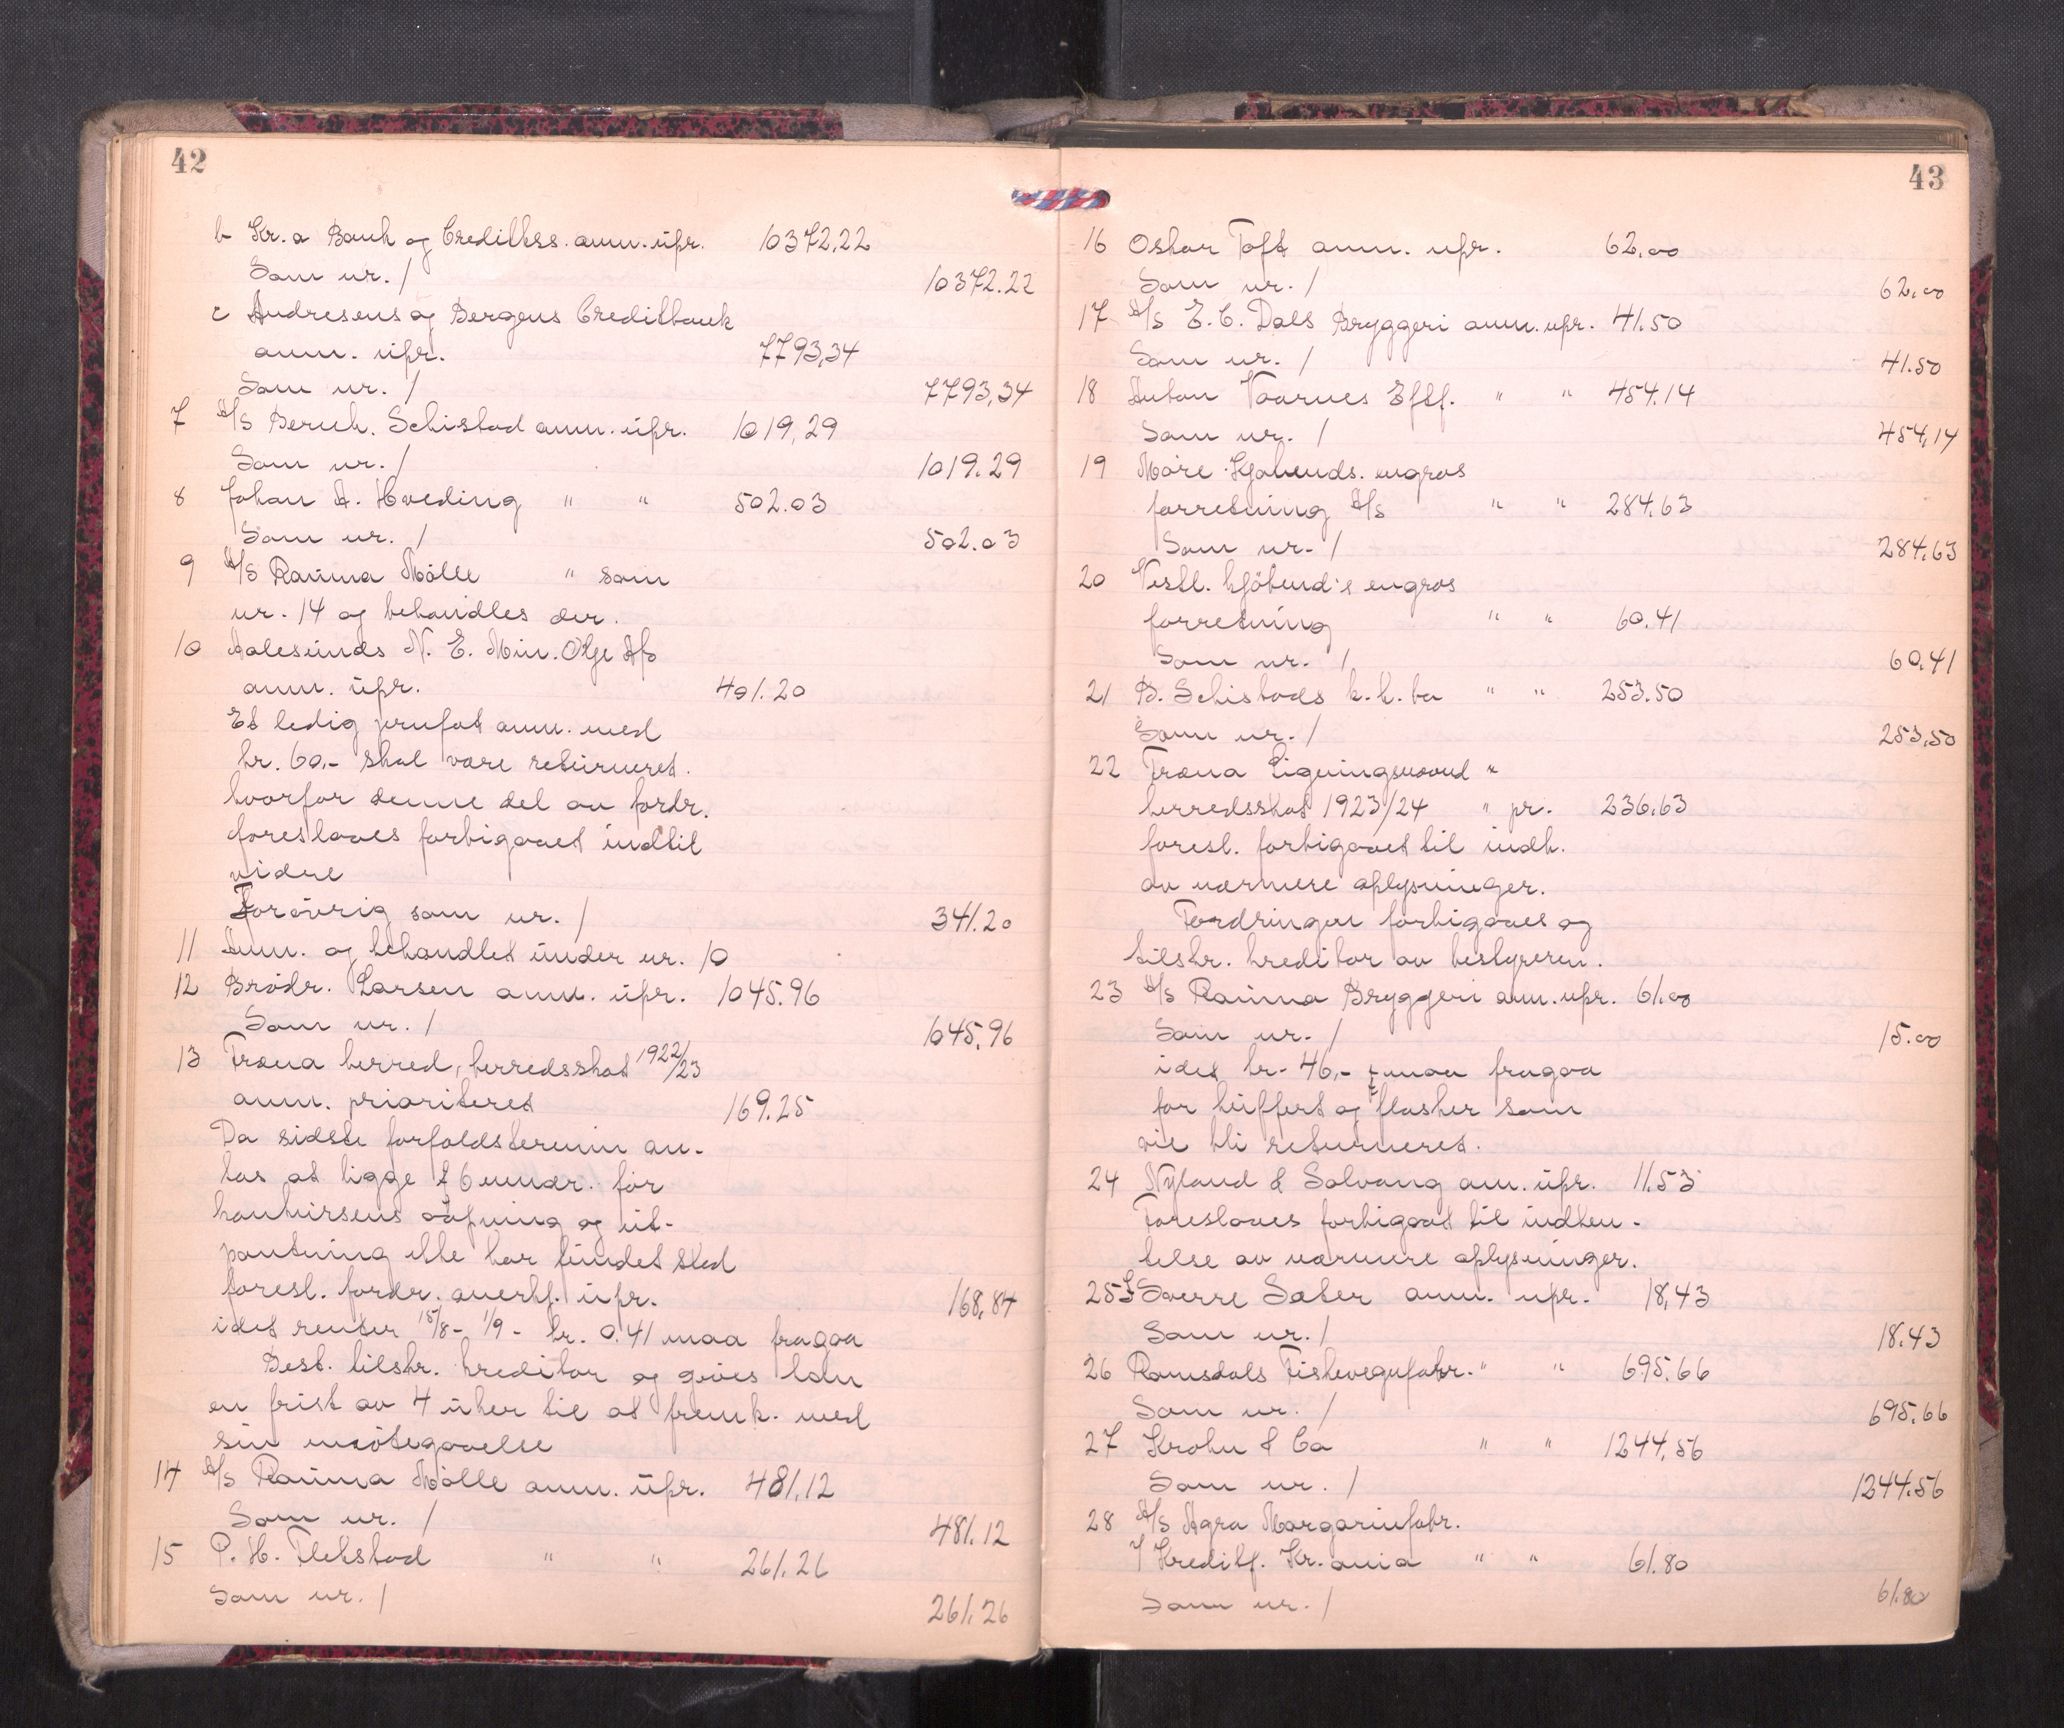 42
b Kr.a Bank og Creditkss. anm. upr. 10372,22
Som nr. 1 10372.22
c Andresens og Bergens Creditbank
anm. upr. 7793,34
Som nr. 1 7793,34
7 A/S Bernh. Schistad anm. upr. 1019,29
Som nr. 1 1019.29
8 Johan A. Hveding " " 502.03
Som nr. 1 502.03
9 A/S Rauma Mölle " som
nr. 14 og behandles der.
10 Aalesunds N. E. Min. Olje A/S
anm. upr. 401.20
Et ledig jernfat anm. med
kr. 60,- skal være returneret.
hvorfor denne del av fordr.
foreslaaes forbigaaet indtil
videre
Forøvrig som nr. 1 341.20
11 Anm. og behandlet under nr. 10
12 Brödr. Larsen anm. upr. 1045.96
Som nr. 1 1045,96
13 Træna herred, herredsskat 1922/23
anm. prioriteret 169.25
Da sidste forfaldstermin an-
tas at ligge f 6 mndr. før
konkursens aapning og ut-
pantning ikke har fundet sted
foresl. fordr. anerkj. upr. 168,84
idet renter 15/8 - 1/9 - kr. 0.41 maa fragaa
Best. tilskr. kreditor og gives ham
en frist av 4 uker til at fremk. med
sin imøtegaaelse
14 A/S Rauma Mölle anm. upr. 481.12
Som nr. 1 481.12
15 P. H. Flekstad " " 261.26
Som nr. 1 261.26
43
16 Oskar Toft anm. upr. 62,00
Som nr. 1 62,00
17 A/S E. C. Dals Bryggeri anm. upr. 41.50
Som nr. 1 41.50
18 Anton Vaarnes Eftf. " " 454.14
Som nr. 1 454,14
19 Møre Kjøbmds. engros
forretning A/S " " 284,63
Som nr. 1 284,63
20 Vestl. kjöbmd's engros
forretning " " 60.41
Som nr. 1 60.41
21 B. Schistads k.k. bo " " 253.50
Som nr. 1 253,50
22 Træna Ligningsnævnd "
herredsskat 1923/24 " pr. 236.63
foresl. forbigaaet til indh.
av nærmere oplysninger.
Fordringen forbigaaes og
tilskr. kreditor av bestyreren.
23 A/S Rauma Bryggeri anm. upr. 61.00
Som nr. 1 15.00
idet kr. 46,- maa fragaa
for kuffert og flasker som
vil bli returneret.
24 Nyland & Solvang anm. upr. 11.53
Foreslaaes forbigaat til indhen-
telse av nærmere oplysninger.
25 Sverre Sæter anm. upr. 18,43
Som nr. 1 18.43
26 Romsdals Fiskevegnfabr. " " 695.66
Som nr. 1 695.66
27 Krohn & Co " " 1244,56
Som nr. 1 1244.56
28 A/S Agra Margarinfabr.
v/ Kreditf. Kr.ania " " 61.80
Som nr. 1 61.80